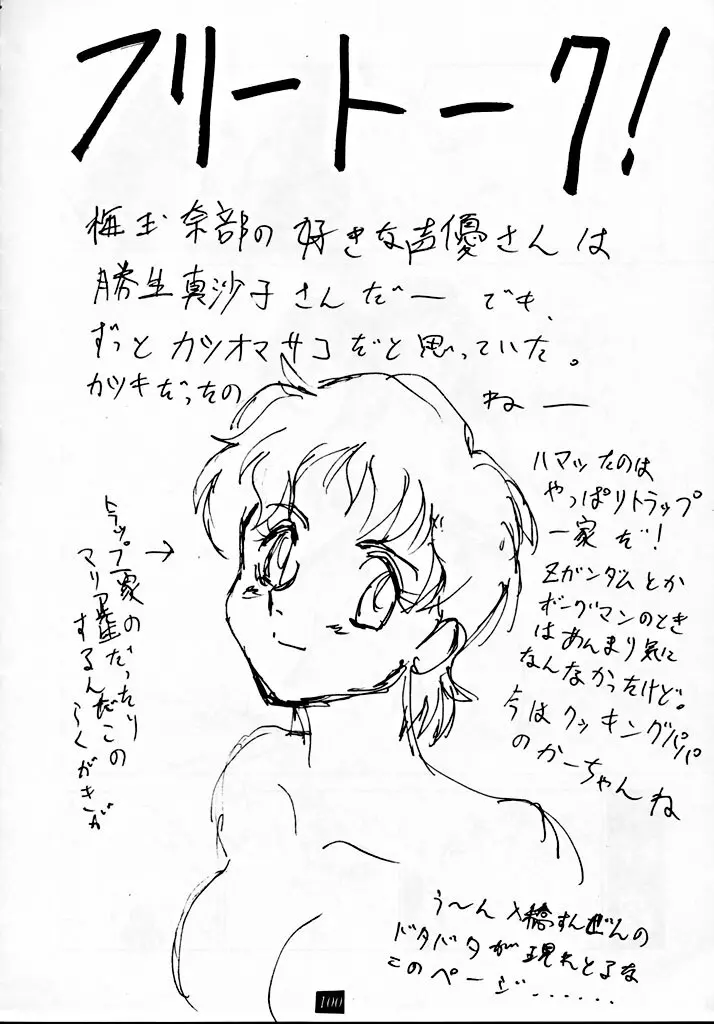 フリートーク!
梅玉奈部の好きな声優さんは
勝生真沙子さんだー でも、
ずっとカツオマサコだと思っていた。
カツキだったの ねー
ハマッたのは
やっぱりトラップ
一家だ!
Zガンダムとか
ボーグマンのとき
はあんまり気に
なんなかったけど。
今はクッキングパパ
のかーちゃんね
トラップ一家の
マリア先生だったり
するんだこの
らくがきが
→
う〜ん〆橋すんぜんの
ドタバタが現れとるな
このページ......
100